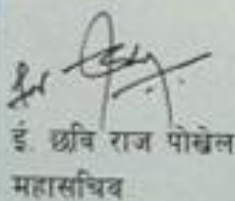 ई. छवि राज पोखेल
महासचिव